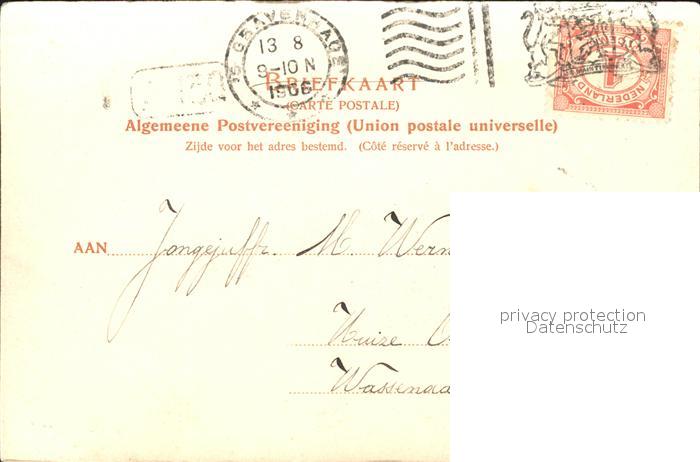 'S GRAVENHAGE
13 8
9-10 N
1906
NEDERLAND
1
BRIEFKAART
(CARTE POSTALE)
Algemeene Postvereeniging (Union postale universelle)
Zijde voor het adres bestemd. (Côté réservé à l'adresse.)
AAN Jongejuffr. M. Wern
Huize
Wassenaa
privacy protection
Datenschutz